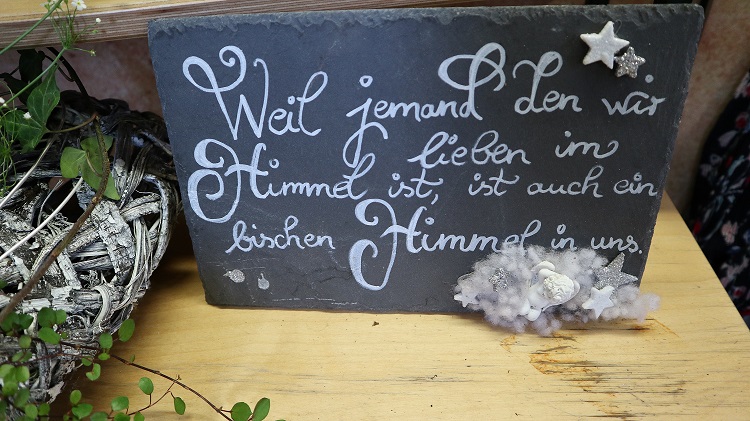 Weil jemand den wir
lieben im
Himmel ist, ist auch ein
bischen Himmel in uns.